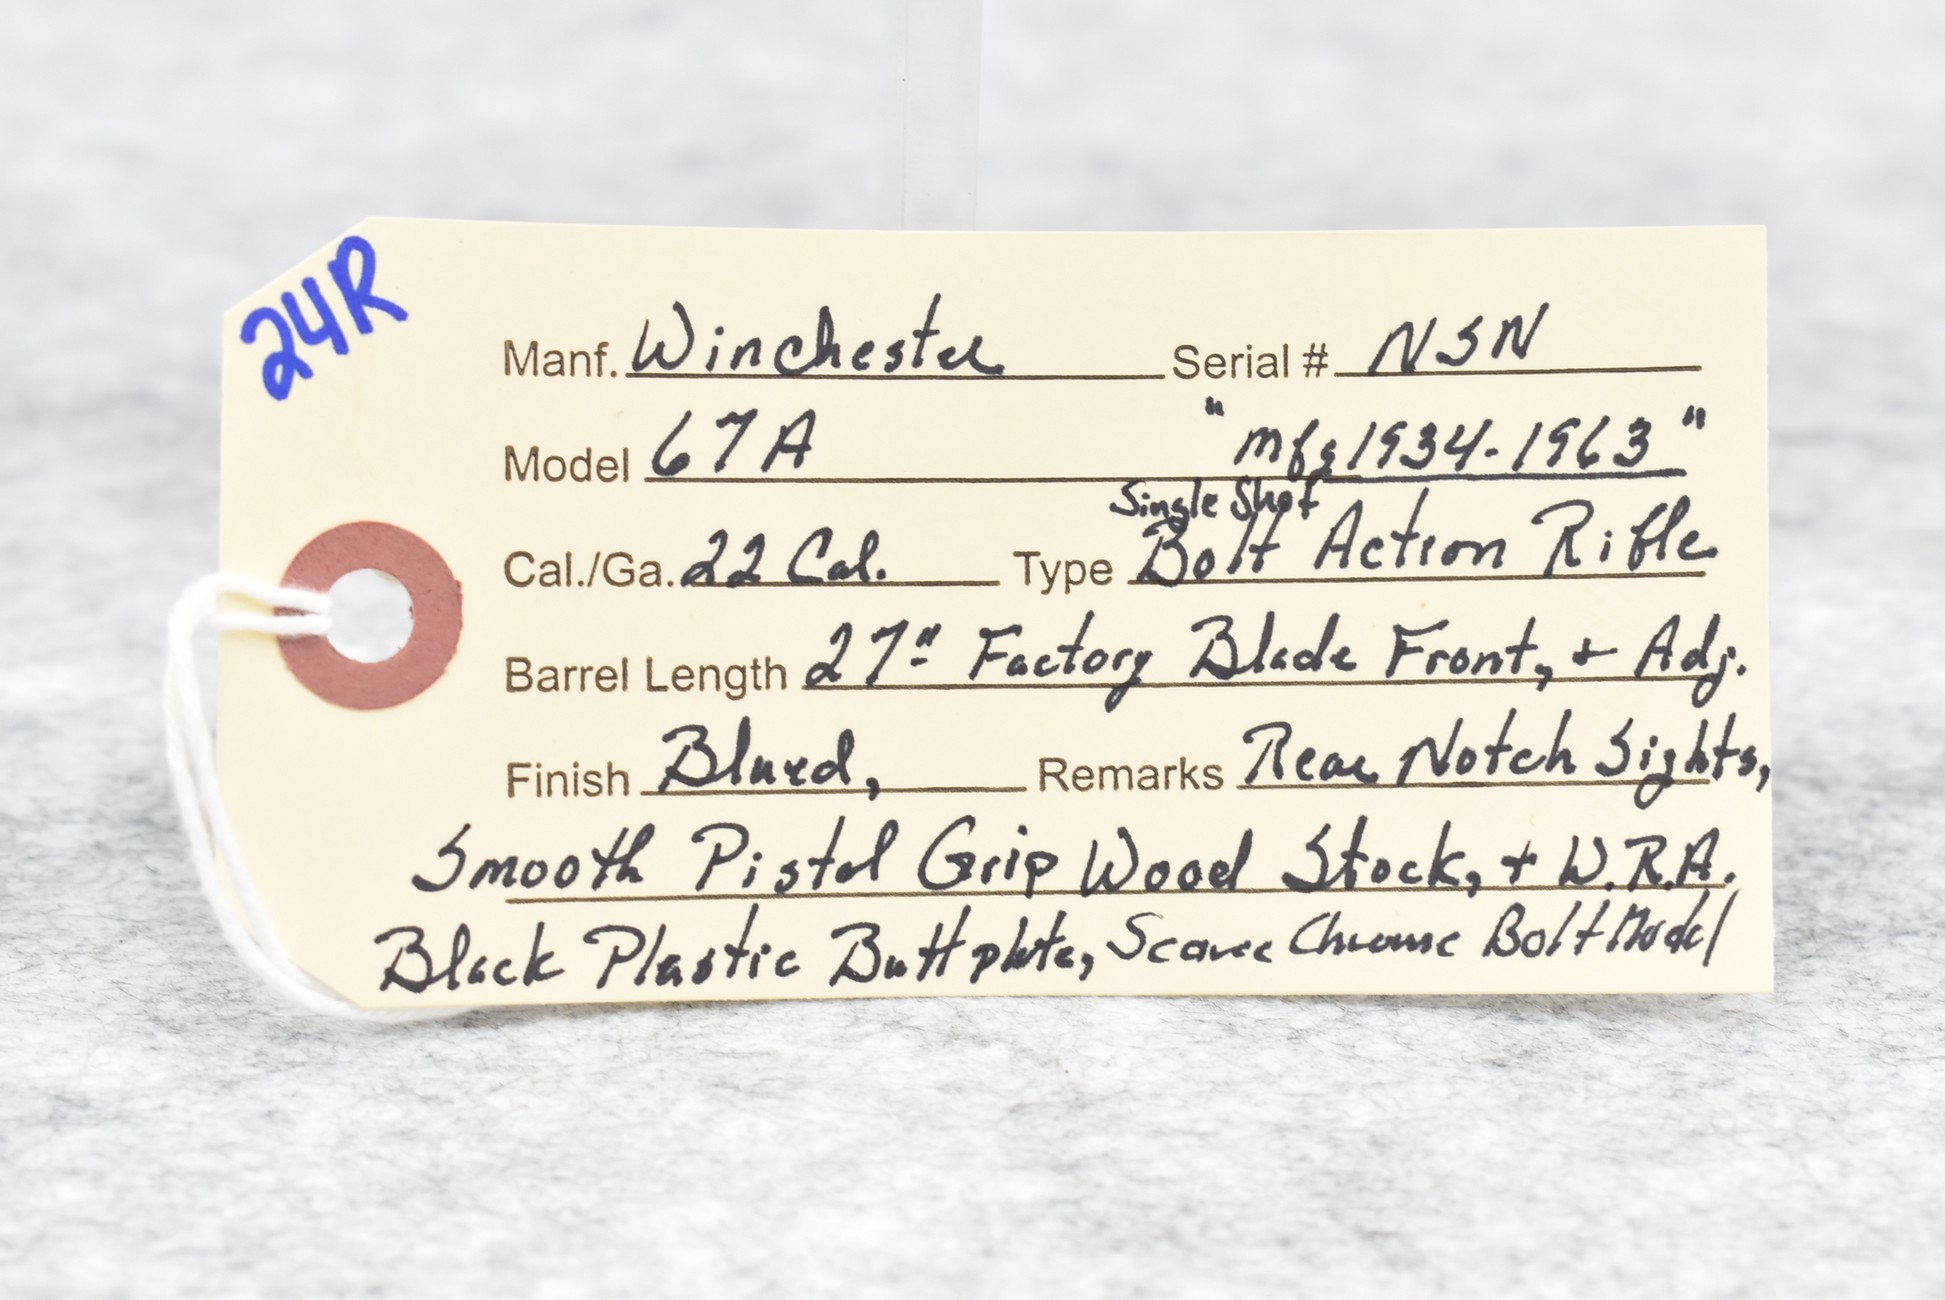 24R
Manf. Winchester Serial # NSN
Model 67A "mfg 1934-1963"
Single Shot
Cal./Ga. 22 Cal. Type Bolt Action Rifle
Barrel Length 27" Factory Blade Front, + Adj.
Finish Blued, Remarks Rear Notch Sights,
Smooth Pistol Grip Wood Stock, + W.R.A.
Black Plastic Buttplate, Scarce Chrome Bolt Model